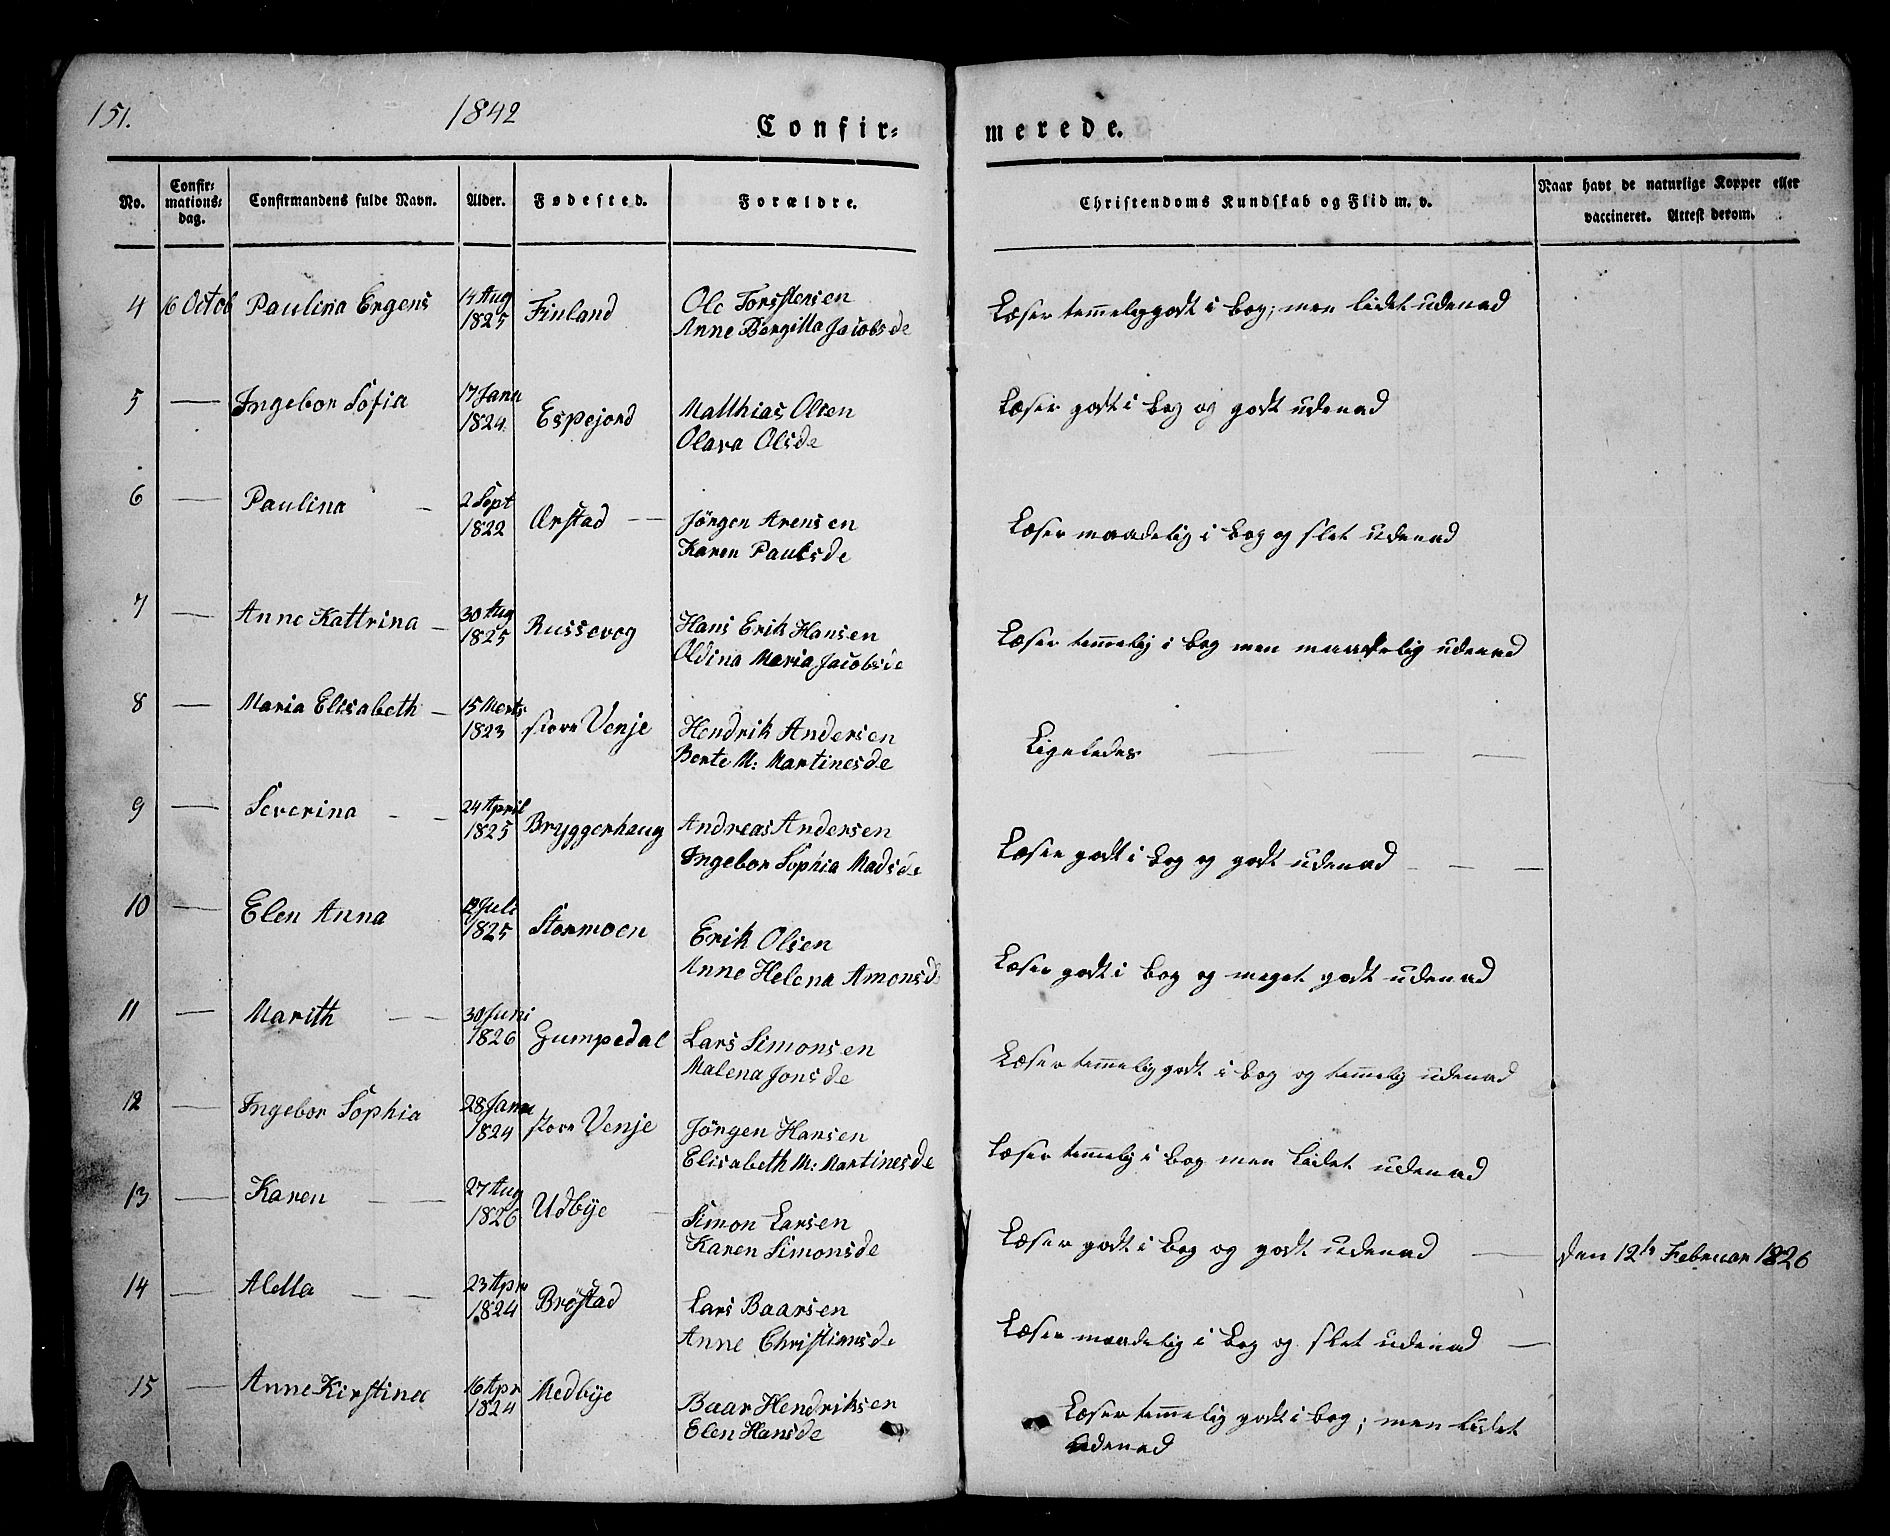 151.
1842
Confir-
merede.
No.
Confir-
mations-
dag.
Confirmandens fulde Navn.
Alder.
Fødested.
Forældre.
Christendoms Kundskab og Flid m. v.
Naar havt de naturlige Kopper eller
vaccineret. Attest derom.
4 16 Octob Paulina Ergens 14 Aug 1825 Finland Ole Torstensen
Anne Bergitta Jacobsde
Læser temmelig godt i bog; men lidet udenad
5 — Ingebor Sofia 17 Janu 1824 Espejord Matthias Olsen
Olava Olsde
Læser godt i bog og godt udenad
6 — Paulina — 2 Sept 1822 Ørstad — Jörgen Arensen
Karen Paulsde
Læser maadelig i bog og slet udenad
7 — Anne Kattrina — 30 Aug 1825 Russevog Hans Erik Hansen
Oldina Maria Jacobsde
Læser temmelig i bog men maadelig udenad
8 — Maria Elisabeth — 15 Merts 1823 store Venje Hendrik Andersen
Berte M: Martinesde
Ligeledes — —
9 — Severina — — 24 April 1825 Bryggerhaug Andreas Andersen
Ingebor Sophia Madsde
Læser godt i bog og godt udenad — — —
10 — Elen Anna 12 Juli 1825 Stormoen Erik Olsen
Anne Helena Amonsd
Læser godt i bog og meget godt udenad
11 — Marith — — 30 Juni 1826 Gumpedal Lars Simonsen
Malena Jonsde
Læser temmelig godt i bog og temmelig udenad
12 — Ingebor Sophia 28 Janu 1824 store Venje Jörgen Hansen
Elisabeth M: Martinesde
Læser temmelig i bog men lidet udenad
13 — Karen — — 27 Aug 1826 Udbye — Simon Larsen
Karen Simonsde
Læser godt i bog og godt udenad — den 12te Februar 1826
14 — Aletta — — 23 Apr 1824 Bröstad Lars Baarsen
Anne Christiansde
Læser maadelig i bog og slet udenad —
15 — Anne Kirstina 16 Apr 1824 Medbye Baar Hendriksen
Elen Hansde
Læser temmelig godt i bog; men lidet
udenad